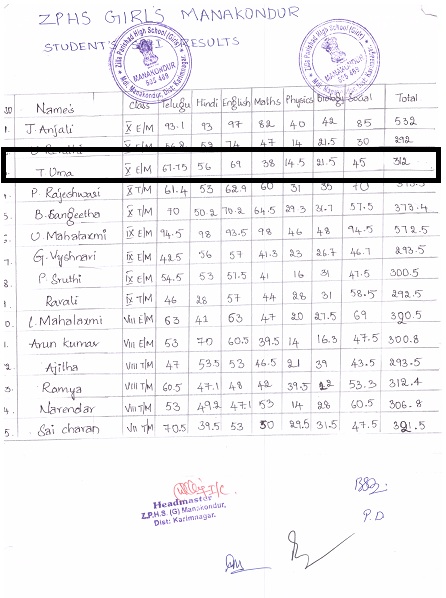 ZPHS GIRL'S MANAKONDUR
STUDENT'S RESULTS
Names Class Telugu Hindi English Maths Physics Biology Social Total
1. J. Anjali X E/M 93.1 93 97 82 40 42 85 532
X E/M 47 14 21.5 30 292
T. Uma X E/M 67.75 56 69 38 14.5 21.5 45 312
P. Rajeshwari X T/M 61.4 53 62.9 60 31 35 70
5. B. Sangeetha X T/M 70 50.2 70.2 64.5 29.3 31.7 57.5 373.4
V. Mahalaxmi IX E/M 94.5 98 93.5 98 46 48 94.5 572.5
7. G. Vyshnavi IX E/M 42.5 56 57 41.3 23 26.7 46.7 293.5
8. P. Sruthi IX E/M 54.5 53 57.5 41 16 31 47.5 300.5
Ravali IX T/M 46 28 57 44 28 31 58.5 292.5
0. L. Mahalaxmi VIII E/M 63 41 63 47 20 27.5 69 320.5
1. Arun kumar VIII E/M 53 70 60.5 39.5 14 16.3 47.5 300.8
2. Ajilha VIII T/M 47 53.5 53 46.5 21 39 43.5 293.5
3. Ramya VIII T/M 60.5 47.1 48 42 39.5 22 53.3 312.4
4. Narendar VIII T/M 53 49.2 47.1 53 14 28 60.5 306.8
5. Sai charan VII T/M 70.5 39.5 53 50 29.5 31.5 47.5 321.5
Headmaster
Z.P.H.S (G) Manakondur,
Dist: Karimnagar.
P.D